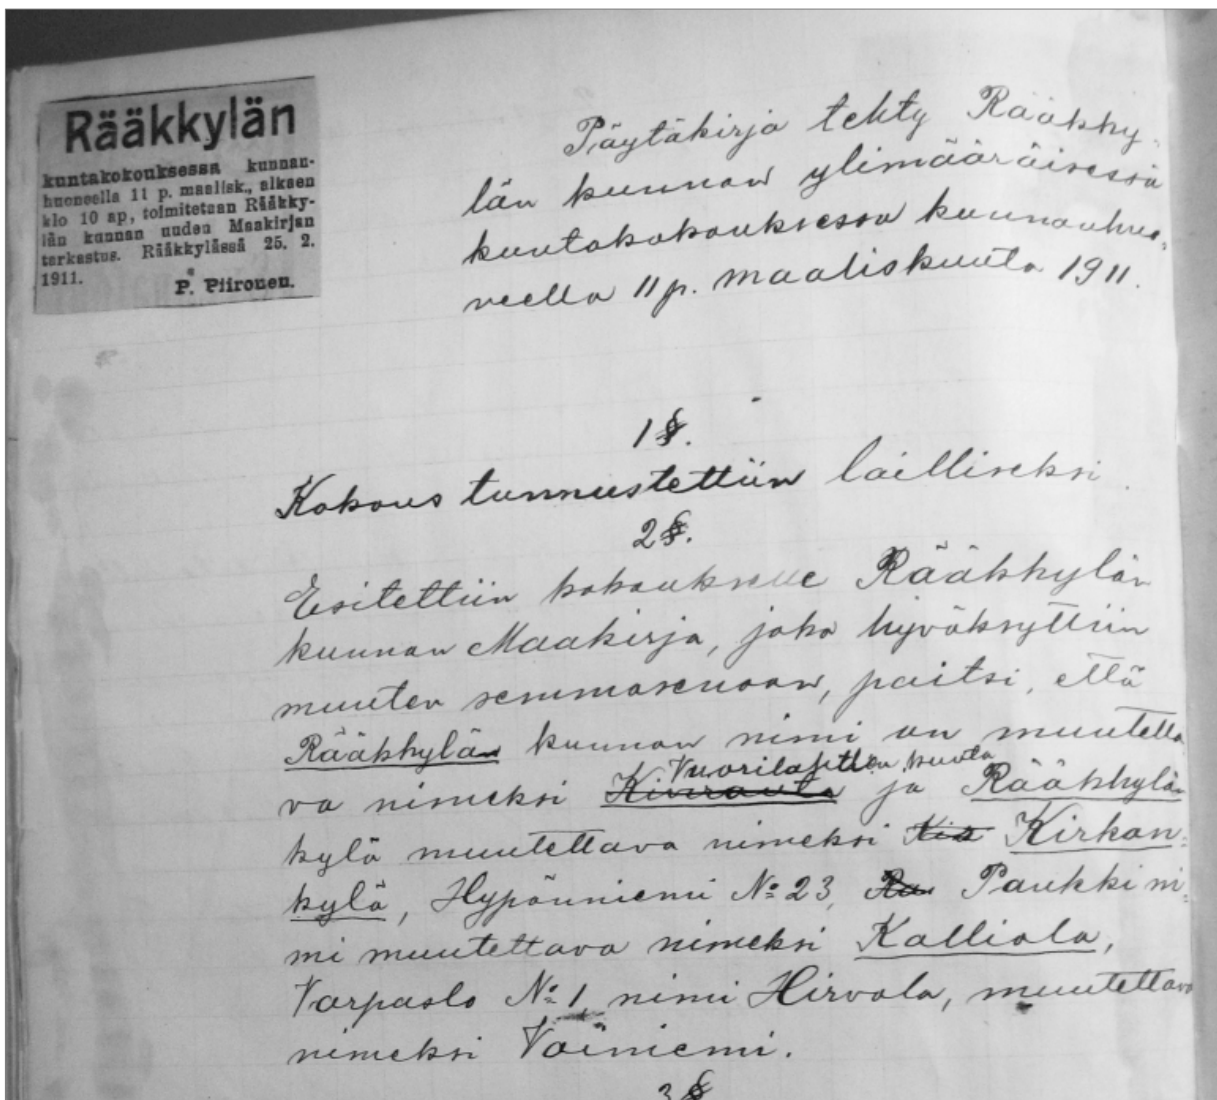 Rääkkylän
kuntakokouksessa kunnan-
huoneella 11 p. maalisk., alkaen
klo 10 ap, toimitetaan Rääkky-
län kunnan uuden Maakirjan
tarkastus. Rääkkylässä 25. 2.
1911.
P. Piironen.
Pöytäkirja tehty Rääkky-
län kunnan ylimääräisessä
kuntakokouksessa kunnanhuo-
neella 11 p. maaliskuuta 1911.
1 §.
Kokous tunnustettiin lailliseksi.
2 §.
Esitettiin kokoukselle Rääkkylän
kunnan Maakirja, joka hyväksyttiin
muuten semmosenaan, paitsi, että
Rääkkylän kunnan nimi on muutetta
Vuorilahden kunta
va nimeksi ja Rääkkylän
kylä muutettava nimeksi Kirkon-
kylä, Hypönniemi № 23, Paukki ni-
mi muutettava nimeksi Kalliola,
Varpaslo № 1 nimi Hirvola, muutettava
nimeksi Väiniemi.
3 §